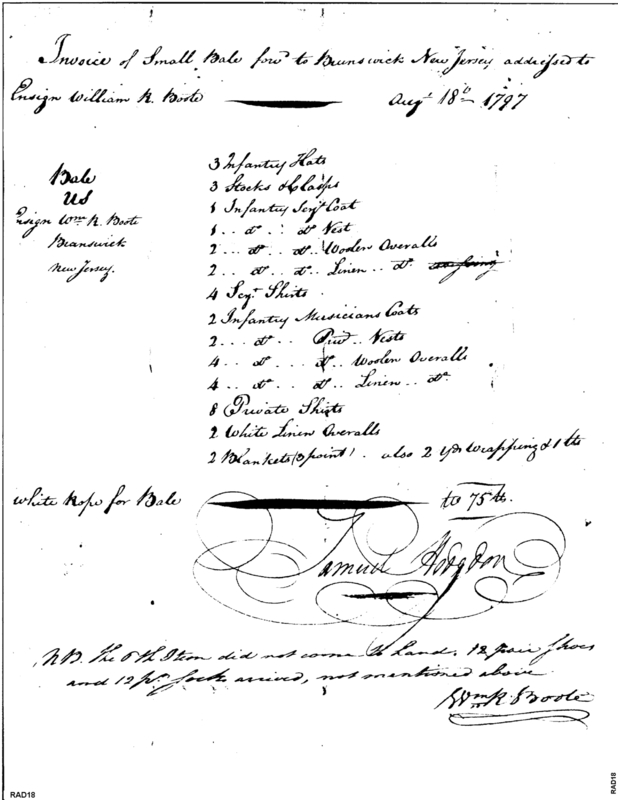 Invoice of Small Bale forwd to Brunswick New Jersey addressed to
Ensign William R. Boote Augt 18th 1797
Bale
US
Ensign Wm R. Boote
Brunswick
New Jersey.
3 Infantry Hats
3 Stocks & Clasps
1 Infantry Serjt Coat
1 .. do .. do Vest
2 .. do .. do .. Woolen Overalls
2 .. do .. do .. Linen .. do
4 Serjt Shirts
2 Infantry Musicians Coats
2 ... do .. Vests
4 .. do ... do .. Woolen Overalls
4 .. do ... do .. Linen .. do
8 Private Shirts
2 White Linen Overalls
2 Blankets (3 point) . also 2 yds Wrapping & 1 lb
white Rope for Bale
wt 75 lbs.
Samuel Hodgdon
NB. The 6th Item did not come to hand. 12 pair Shoes
and 12 pr. socks arrived, not mentioned above
Wm R Boote
RAD18
RAD18